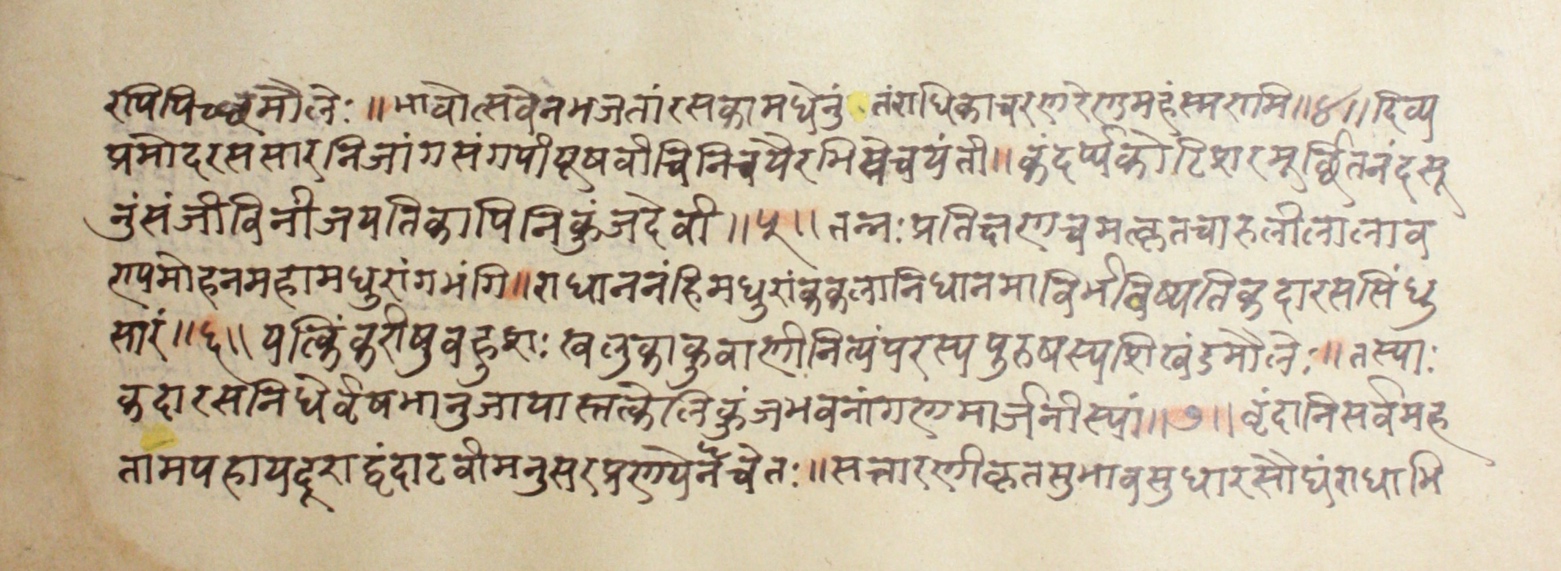 रपिपिच्छमौलेः॥भावोत्सवेनभजतांरसकामधेनुं तंराधिकाचरणरेणुमहंस्मरामि॥४॥दिव्य
प्रमोदरससारनिजांगसंगपीयूषवीचिनिचयैरभिषेचयंती॥कंदर्प्पकोटिशरमूर्छितनंदसू
नुंसंजीविनीजयतिकापिनिकुंजदेवी॥५॥तन्नःप्रतिक्षणचमत्कृतचारुलीलालाव
ण्यमोहनमहामधुरांगभंगि॥राधाननंहिमधुरांककलानिधानमाविर्भविष्यतिकदारससिंधु
सारं॥६॥यत्किंकरीषुबहुशःखलुकाकुवाणीनित्यंपरस्यपुरुषस्यशिखंडमौलेः॥तस्याः
कदारसनिधेर्वृषभानुजायास्तत्केलिकुंजभवनांगणमार्जनीस्यां॥७॥वृंदानिसर्वमह
तामपहायदूराद्वृंदाटवीमनुसरप्रणयेनचेतः॥सत्तारणीकृतसुभावसुधारसौघंराधाभि